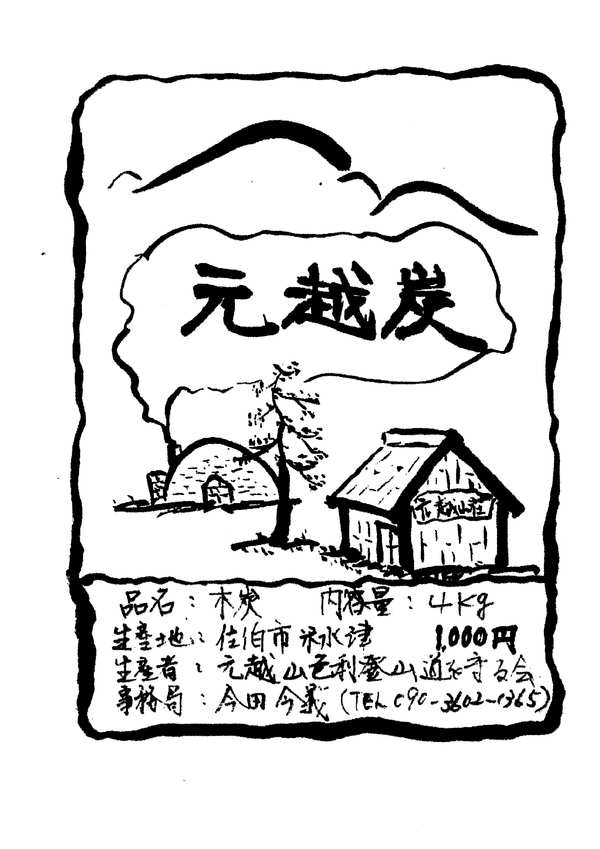 元越炭
元越山荘
品名：木炭　内容量：4Kg
生産地：佐伯市米水津　1,000円
生産者：元越山色利登山道を守る会
事務局：今田今義（TEL 090-3602-1365）